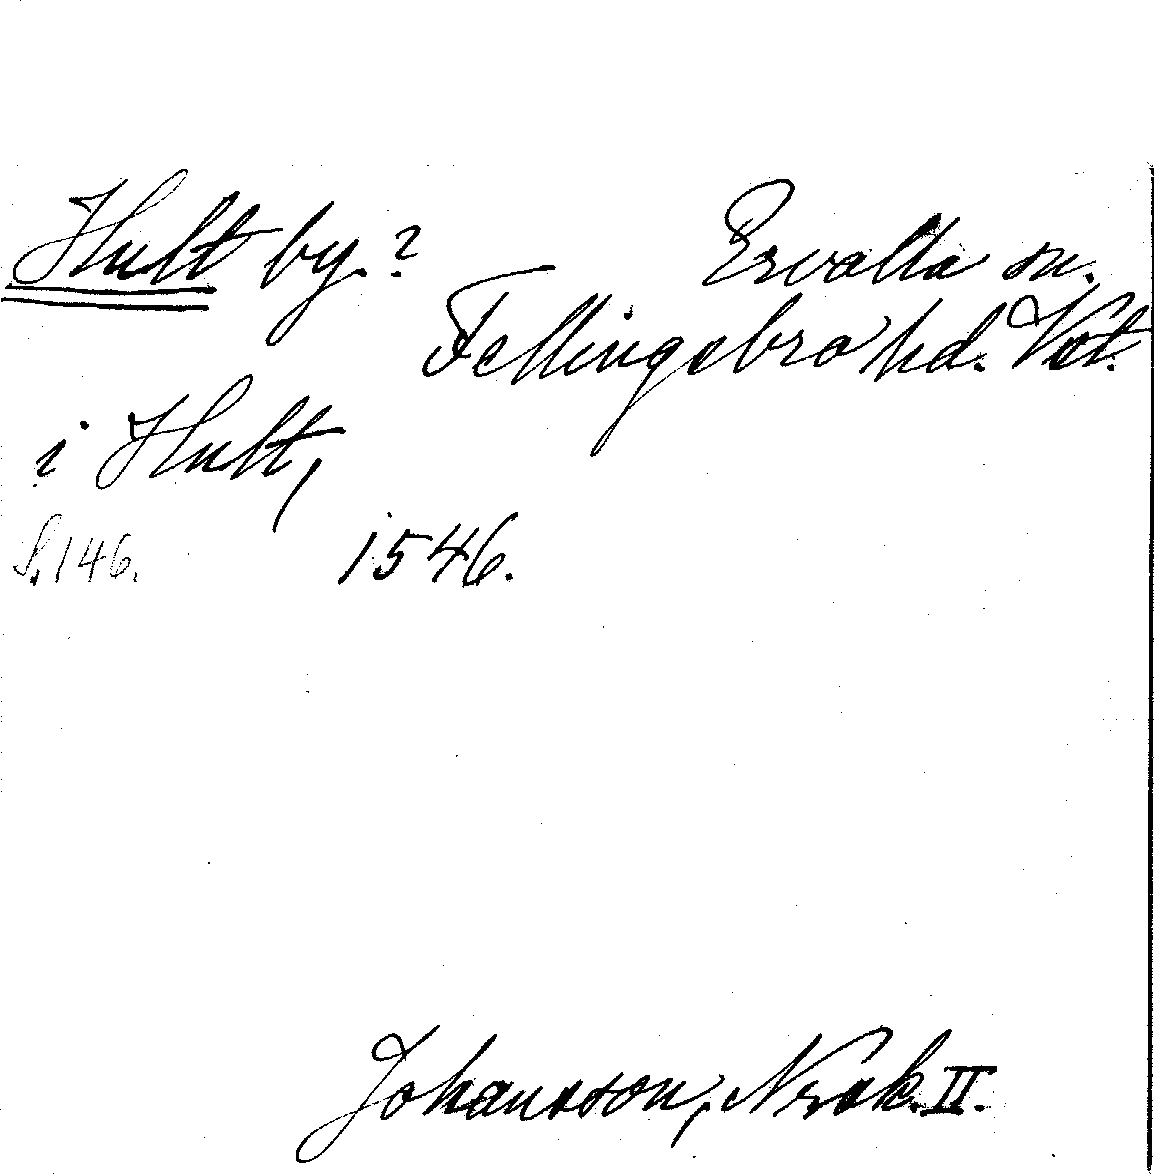 Hult by.? Ervalla sn.
Fellingsbro hd. Vst.
i Hult,
S. 146. 1546.
Johansson, Nrak. II.